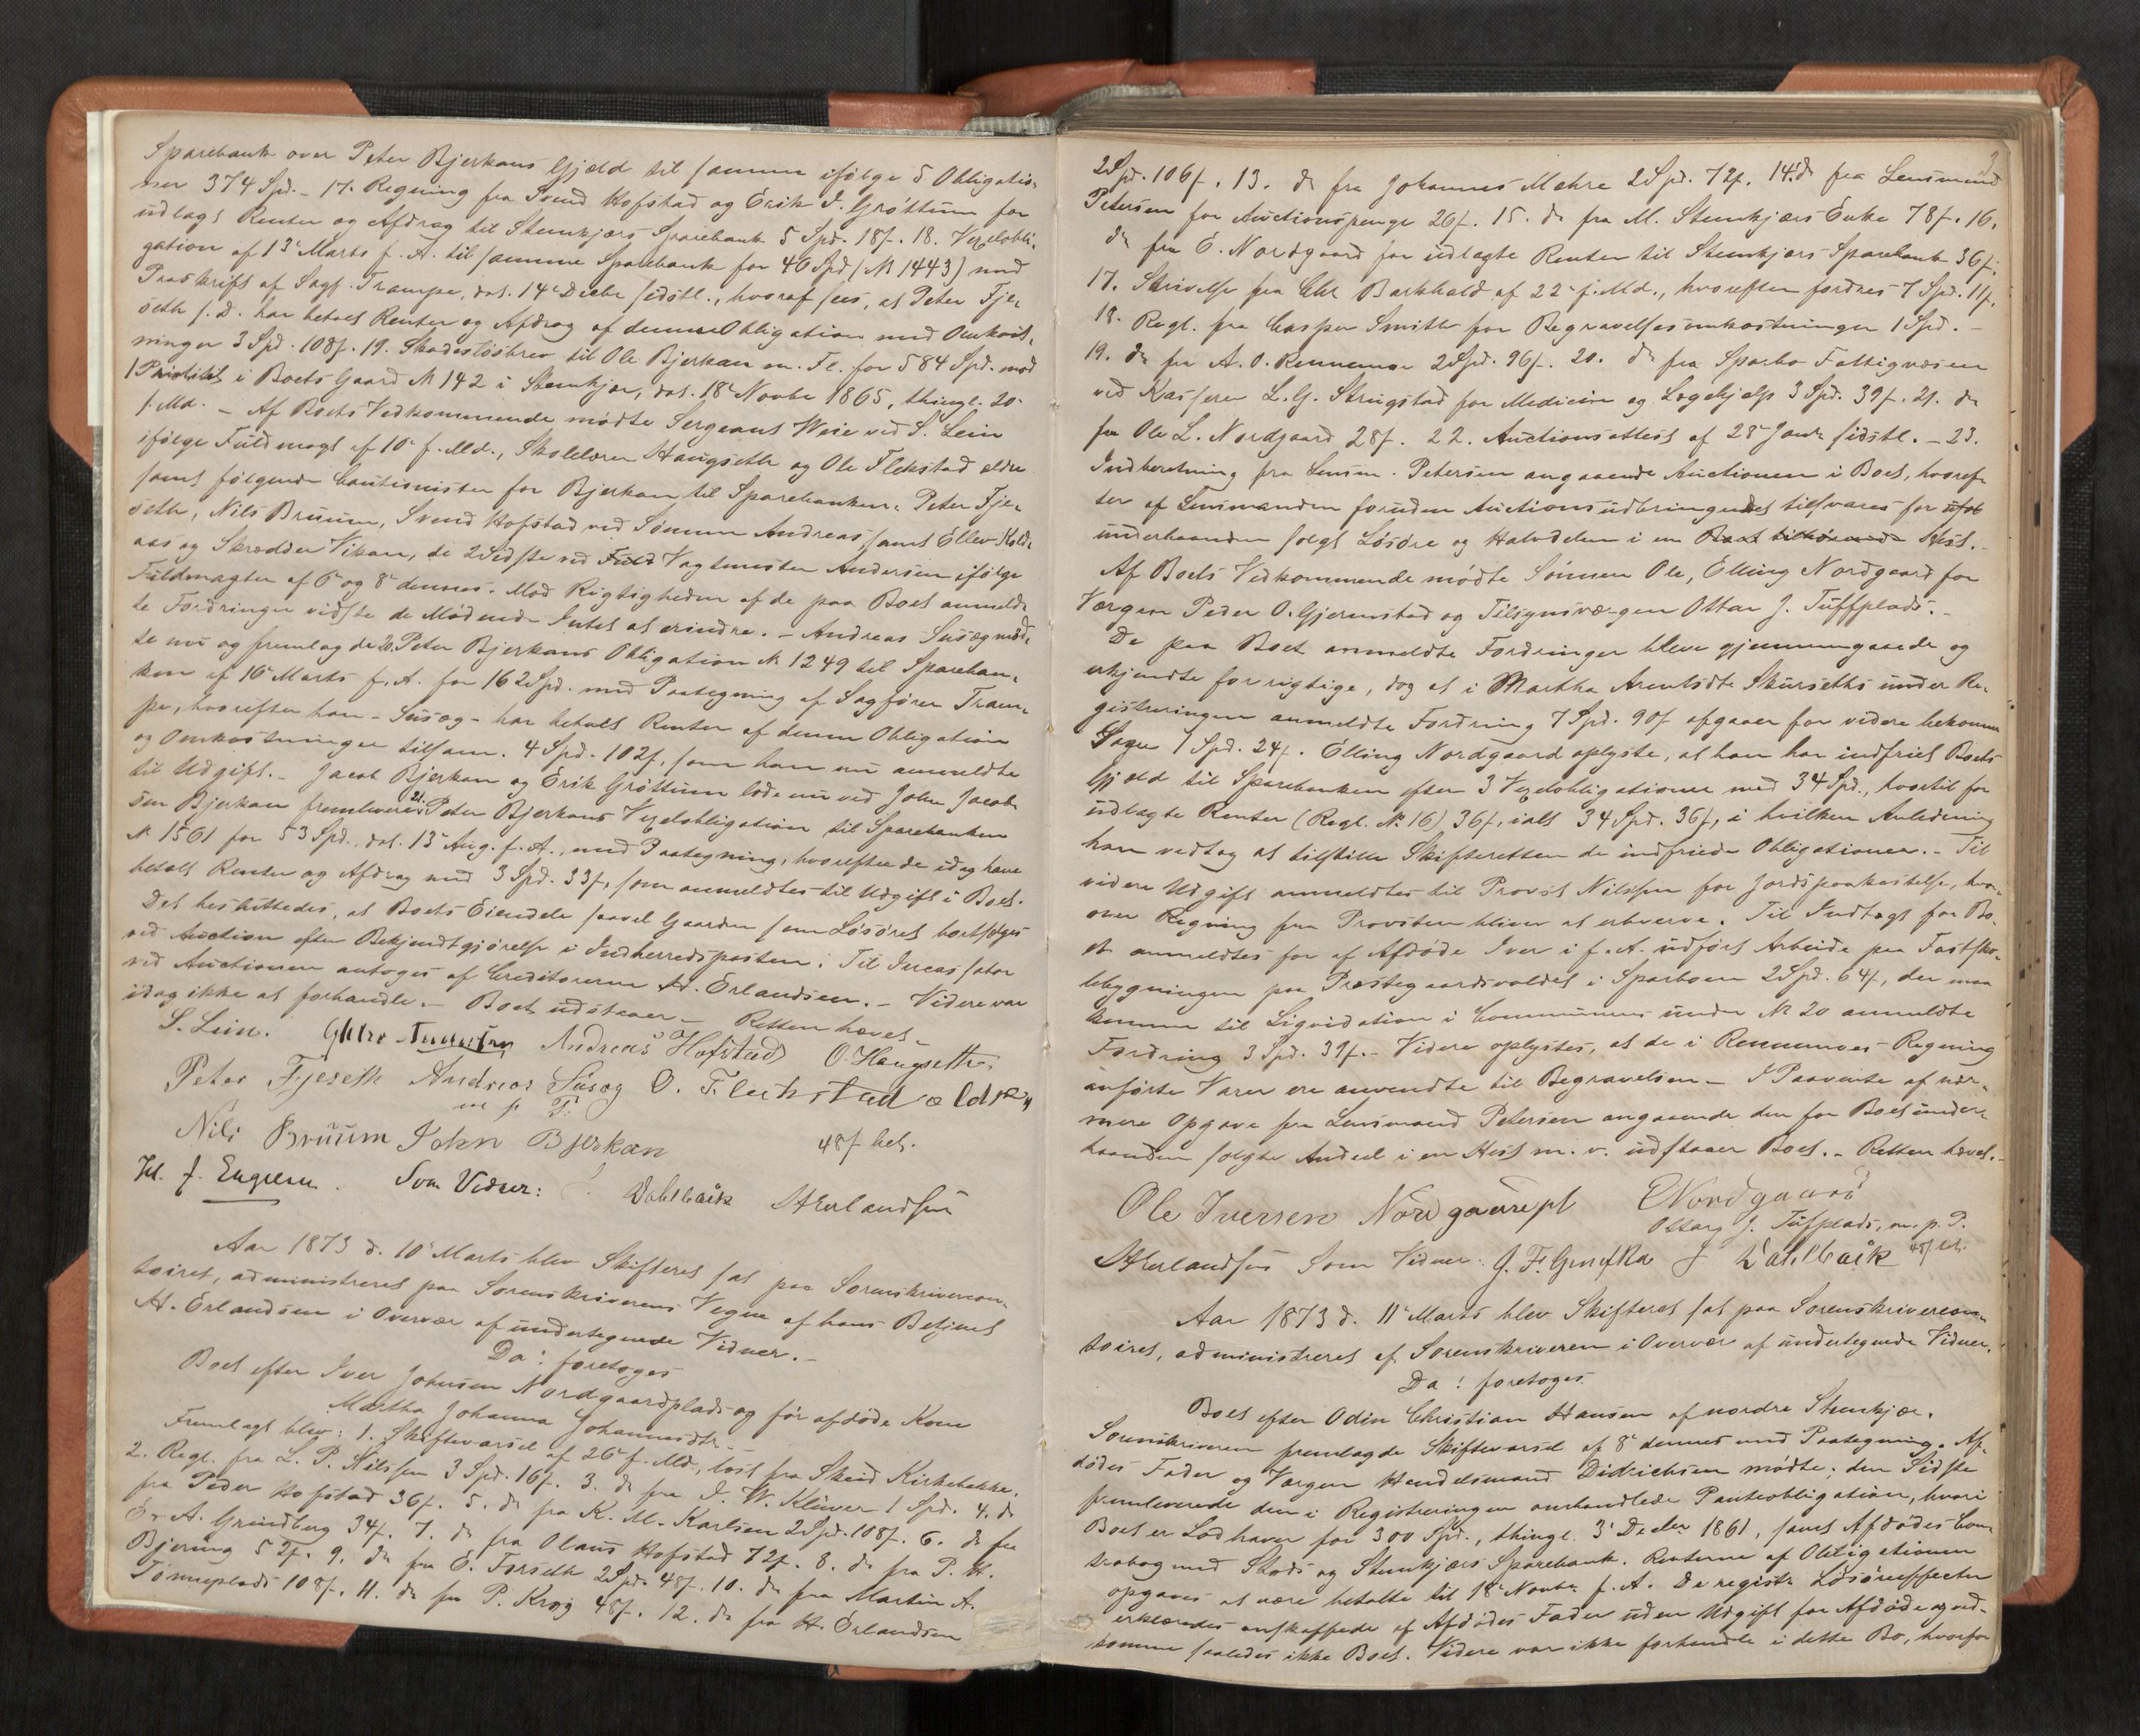 Sparebank over Peter Bjerkans Gjæld til samme ifølge 5 Obligatio-
ner 374 Spd. - 17. Regning fra Svend Hofstad og Erik J. Grøttum for
udlagt Renter og Afdrag til Stenkjærs Sparebank 5 Spd. 18 f. 18. Vexelobli-
gation af 13' Marts f. A. til samme Sparebank for 40 Spd. (N 1443) med
Paaskrift af Sagf. Trampe, dat. 14' Decbr sidstl., hvoraf sees, at Peter Fje-
seth s. D. har betalt Renter og Afdrag af denne Obligation med Omkost-
ninger 3 Spd. 108 f. 19. Skadesløsbrev til Ole Bjerkan m. Fl. for 584 Spd. med
1 Prioritet i Boets Gaard N 142 i Stenkjær, dat. 18' Novbr 1865, thingl. 20'
s. Md. - Af Boets Vedkommende mødte Sergeant Weie ved S. Lein
ifølge Fuldmagt af 10' f. Md., Skolelærer Haugseth og Ole Flekstad ældre
samt følgende Cautionister for Bjerkan til Sparebanken: Peter Fje-
seth, Nils Bruum, Svend Hofstad ved Sønnen Andreas samt Ellev Kold-
aas og Skrædder Vikan, de 2 Sidste ved Vagtmester Andersen ifølge
Fuldmagter af 6' og 8' dennes. Mod Rigtigheden af de paa Boet anmeld-
te Fordringer vidste de Mødende Intet at erindre. - Andreas Susæg mød-
te nu og fremlagde 20. Peter Bjerkans Obligation N 1249 til Spareban-
ken af 16' Marts f. A. for 162 Spd. med Paategning af Sagfører Tram-
pe, hvorefter han - Susæg - har betalt Renter af denne Obligation
og Omkostninger tilsam. 4 Spd. 102 f., som han nu anmeldte
til Udgift. - Jacob Bjerkan og Erik Grøttum lode nu ved John Jacob-
sen Bjerkan fremlevere 21. Peter Bjerkans Vexelobligation til Sparebanken
N 1561 for 53 Spd., dat. 13' Aug. f. A., med Paategning, hvorefter de idag have
betalt Renter og Afdrag med 3 Spd. 33 f., som anmeldtes til Udgift i Boet.
Det besluttedes, at Boets Eiendele saavel Gaarden som Løsøret bortsælges
ved Auction efter Bekjendtgjørelse i Indherredsposten. Til Incassator
ved Auctionen antoges af Creditorerne A. Erlandsen. - Videre var
idag ikke at forhandle. - Boet udstaaer. - Retten hævet. -
S. Lein. Andersen Andreas Hofstad O. Haugseth
Peter Fjeseth Andreas Susæg O. Flekstad ældre
m. p. P.
Nils Bruum John Bjerkan 48 f. bet.
Som Vidner: Dahlbaik AErlandsen
Aar 1873 d. 10' Marts blev Skifteret sat paa Sorenskrivercon-
toiret, administreret paa Sorenskriverens Vegne af hans Betjent
A. Erlandsen i Overvær af undertegnede Vidner. -
Da! foretoges
Boet efter Iver Johnsen Nordgaardplads og før afdøde Kone
Martha Johanna Johannesdtr. -
Fremlagt blev: 1. Skiftevarsel af 26' f. Md., læst fra Skeid Kirkebakke.
2. Regl. fra L. P. Nilssen 3 Spd. 16 f. 3. do fra J. W. Klüwer 1 Spd. 4. do
fra Peder Hofstad 36 f. 5. do fra K. M. Karlsen 2 Spd. 108 f. 6. do fra
A. Grindberg 34 f. 7. do fra Olaus Hofstad 72 f. 8. do fra P. H.
Bjering 52 f. 9. do fra E. Forseth 2 Spd. 48 f. 10. do fra Martin A.
Tømmeplads 108 f. 11. do fra P. Krog 48 f. 12. do fra H. Erlandsen
2 Spd. 106 f. 13. do fra Johannes Mehre 2 Spd. 72 f. 14. do fra Lensmand
Petersen for Auctionspenge 26 f. 15. do fra M. Stenkjærs Enke 78 f. 16.
do fra E. Nordgaard for udlagte Renter til Stenkjærs Sparebank 36 f.
17. Skrivelse fra Chr Barkhald af 22' f. Md., hvorefter fordres 7 Spd. 11 f.
18. Regl. fra Casper Smith for Begravelsesomkostninger 1 Spd. -
19. do fra A. O. Rennemo 2 Spd. 96 f. 20. do fra Sparbo Fattigvæsen
ved Kasserer L. G. Strugstad for Medicin og Lægehjælp 3 Spd. 39 f. 21. do
fra Ole L. Nordgaard 28 f. 22. Auctionsattest af 28' Janr sidstl. - 23.
Indberetning fra Lensm. Petersen angaaende Auctionen i Boet, hvoref-
ter af Lensmanden foruden Auctionsudbringendet tilsvares for
underhaanden solgt Løsøre og Halvdelen i en Hest. -
Af Boets Vedkommende mødte Sønnen Ole, Elling Nordgaard for
Værgen Peder O. Gjermstad og Tilsynsværgen Ottar J. Tuffplads. -
De paa Boet anmeldte Fordringer bleve gjennemgaaede og
erkjendte for rigtige, dog at i Martha Arentsdtr Skurseths under Re-
gistreringen anmeldte Fordring 7 Spd. 90 f afgaaer for videre bekomne
Sager 1 Spd. 24 f. Elling Nordgaard oplyste, at han har indfriet Boets
Gjæld til Sparebanken efter 3 Vexelobligationer med 34 Spd., hvortil for
udlagte Renter (Regl. N. 16) 36 f., ialt 34 Spd. 36 f., i hvilken Anledning
han vedtog at tilstille Skifteretten de indfriede Obligationer. - Til
videre Udgift anmeldtes til Provst Nilssen for Jordspaakastelse, hvor-
over Regning fra Provsten bliver at erhverve. Til Indtægt for Bo-
et anmeldtes for af Afdøde Iver i f. A. udført Arbeide paa Fastsko-
lebygningen paa Præstegaardsvaldet i Sparboen 2 Spd. 64 f., der maa
komme til Liqvidation i Communens under N 20 anmeldte
Fordring 3 Spd. 39 f. - Videre oplystes, at de i Rennemoes Regning
anførte Varer ere anvendte til Begravelsen. - I Paavente af nær-
mere Opgave fra Lensmand Petersen angaaende den for Boet under-
haanden solgte Andeel i en Hest m. v. udstaaer Boet. - Retten hævet. -
Ole Iversen Nordgaarspl ENordgaard
Ottar J. Tufplads, m. p. P.
AErlandsen Som Vidner: J. Dahlbaik 48 f. bet.
Aar 1873 d. 11' Marts blev Skifteret sat paa Sorenskrivercon-
toiret, administreret af Sorenskriveren i Overvær af undertegnede Vidner.
Da! foretoges.
Boet efter Odin Christian Hansen af nordre Stenkjær.
Sorenskriveren fremlagde Skiftevarsel af 8' dennes med Paategning. Af-
dødes Fader og Værgen Handelsmand Didrichsen mødte; den Sidste
fremleverede den i Registreringen omhandlede Panteobligation, hvori
Boet er Lodhaver for 300 Spd., thingl. 3' Decbr 1861, samt Afdødes Con-
trabog med Stods og Stenkjærs Sparebank. Renterne af Obligationen
opgaves at være betalte til 18' Novbr f. A. De registr. Løsøreeffecter
erklæredes anskaffede af Afdødes Fader uden Udgift for Afdøde og ved-
komme saaledes ikke Boet. Videre var ikke forhandle i dette Bo, hvorfor